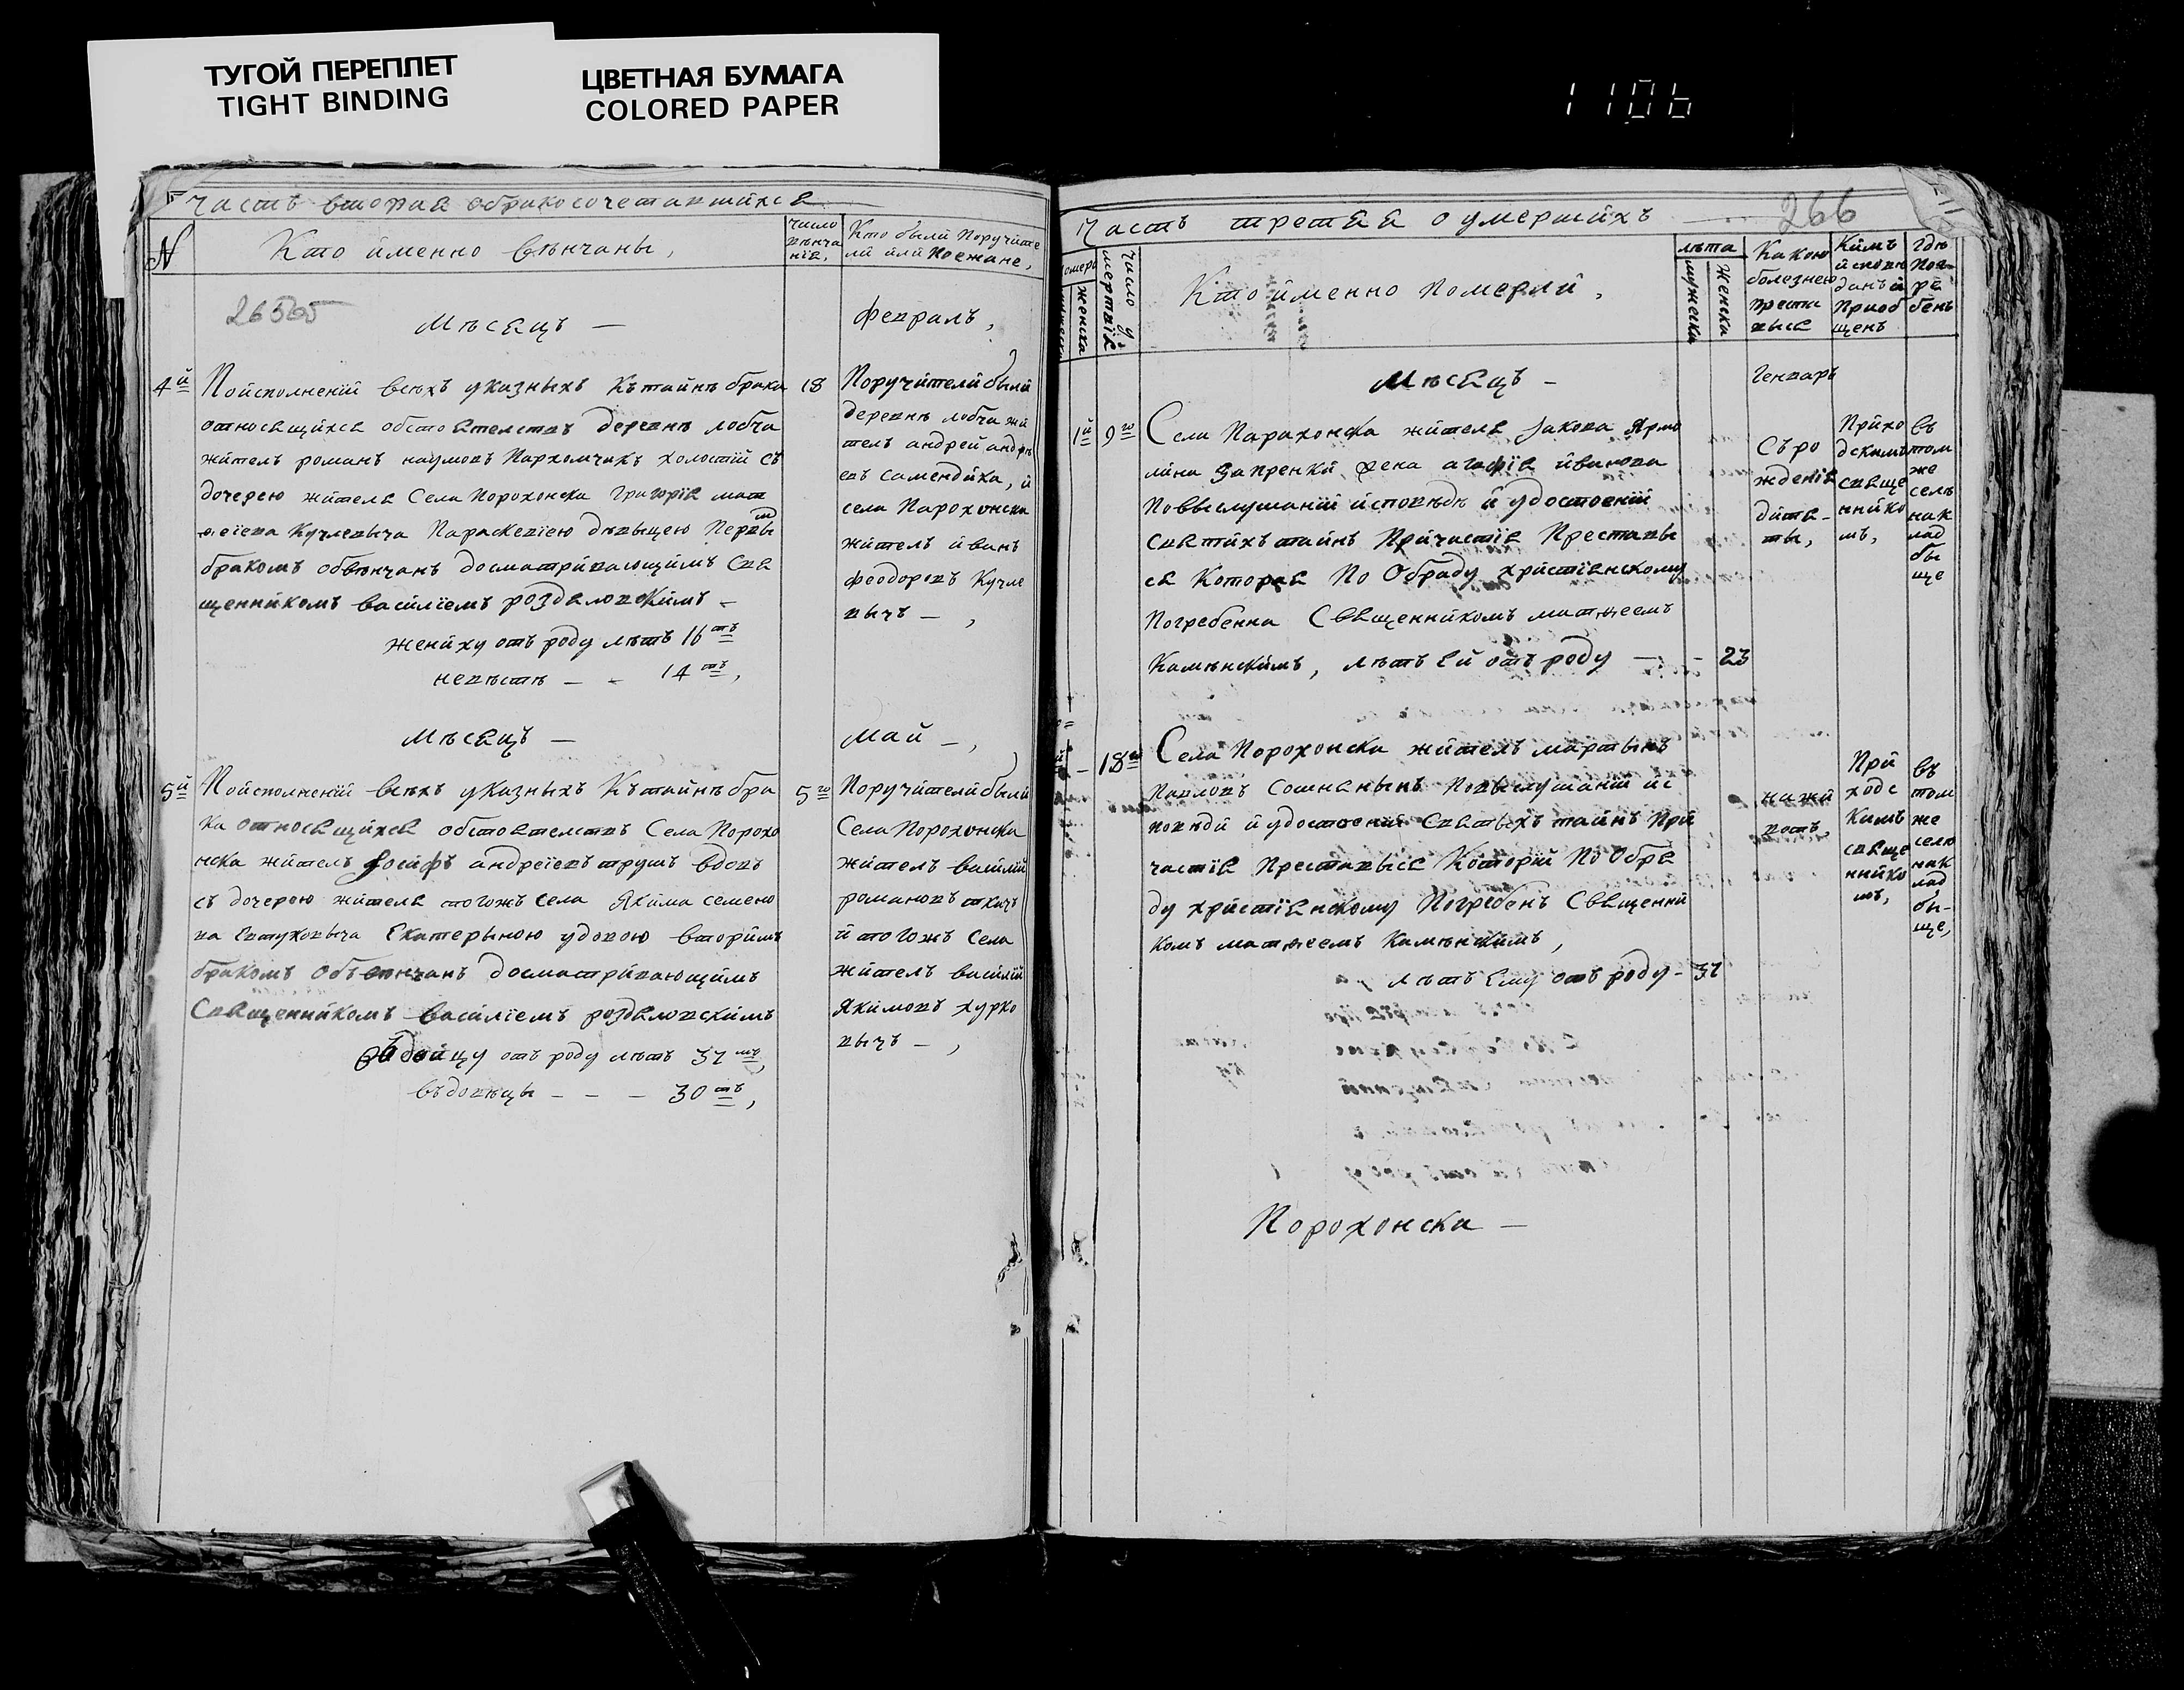 ТУГОЙ ПЕРЕПЛЕТ
TIGHT BINDING
ЦВЕТНАЯ БУМАГА
COLORED PAPER
1106
Часть вторая обракосочетавшихся
N
Кто именно вѣнчаны,
число
вѣнча
нія,
Кто были Поручите
ли или Поежане,
26565
Мѣсяцъ —
февраль,
4й
Поисполненіи всѣхъ указныхъ Къ тайнѣ брака
относящихся обстоятелствъ деревнѣ лобча
житель романъ наумовъ Пархомчикъ холостій съ
дочерею жителя Села Порохонска григорія мат
ѳеіева Кучлевыча Параскевіею дѣвыцею Первым
бракомъ обвѣнчанъ досматривающимъ Свя
щенникомъ василіемъ роздяловскимъ —
жениху отъ роду лѣтъ 16ть
невѣстѣ — - 14ть,
18
Поручители были
деревнѣ лобча жи
тель андрей андре
евъ Самендика, и
села Парохонска
житель иванъ
феодоровъ Кучле
вычъ — ,
Мѣсяцъ —
Май — ,
5й
Поисполненіи всѣхъ указныхъ Къ тайнѣ бра
ка относящихся обстоятелствъ Села Порохо
нска житель Іосифъ андреіевъ трушъ вдовъ
съ дочерею жителя тогожъ Села Якима семено
ва Евтуховыча Екатерыною удовою вторимъ
бракомъ Обвѣнчанъ досматривающимъ
Священникомъ василіемъ роздяловскимъ
отъ роду лѣтъ 37мъ,
въдовѣцы — — — 30ть,
5го
Поручители были
Села Порохонска
житель василій
романовъ ткачъ
и тогожъ Села
житель василій
Якимовъ хурко
вычъ — ,
Часть третяя о умершихъ
266
номеръ
мужеска
женска
число у
мертвія
Кто именно Померли,
лѣта
мужеска
женска
Какою
болезнею
преста
выся
Кимъ
исповѣ
данъ и
Приоб
щенъ
Гдѣ
Пог-
ре
бенъ
Мѣсяцъ —
Генварь
1й
9го
Села Парахонска жителя Іакова Ярмо
лина Запренки жена агафія иванова
Повыслушаніи исповѣдѣ и удостоеніи
святихъ тайнъ Причастія Преставы
ся Которая По Обряду христіянскому
Погребенна Священникомъ матѳеемъ
Камѣнскимъ, лѣтъ ей отъ роду — - 23
Съ ро
жденія
дитя-
ты,
Прихо
дскимъ
свяще
ннико
мъ,
въ
том
же
селѣ
нак
лад
бы
ще
18го
Села Порохонска житель мартынъ
Павловъ Повыслушаніи ис
повѣди и удостоеніи Святыхъ тайнъ При
частія Преставыся Которій По Обря
ду христіянскому Погребенъ Священни
комъ матѳеемъ Камѣнскимъ,
лѣтъ Ему отъ роду - 37
При
ходс
Кимъ
свяще
ннико
мъ,
въ
том
же
селѣ
нак
лад
бы-
ще,
Порохонска —